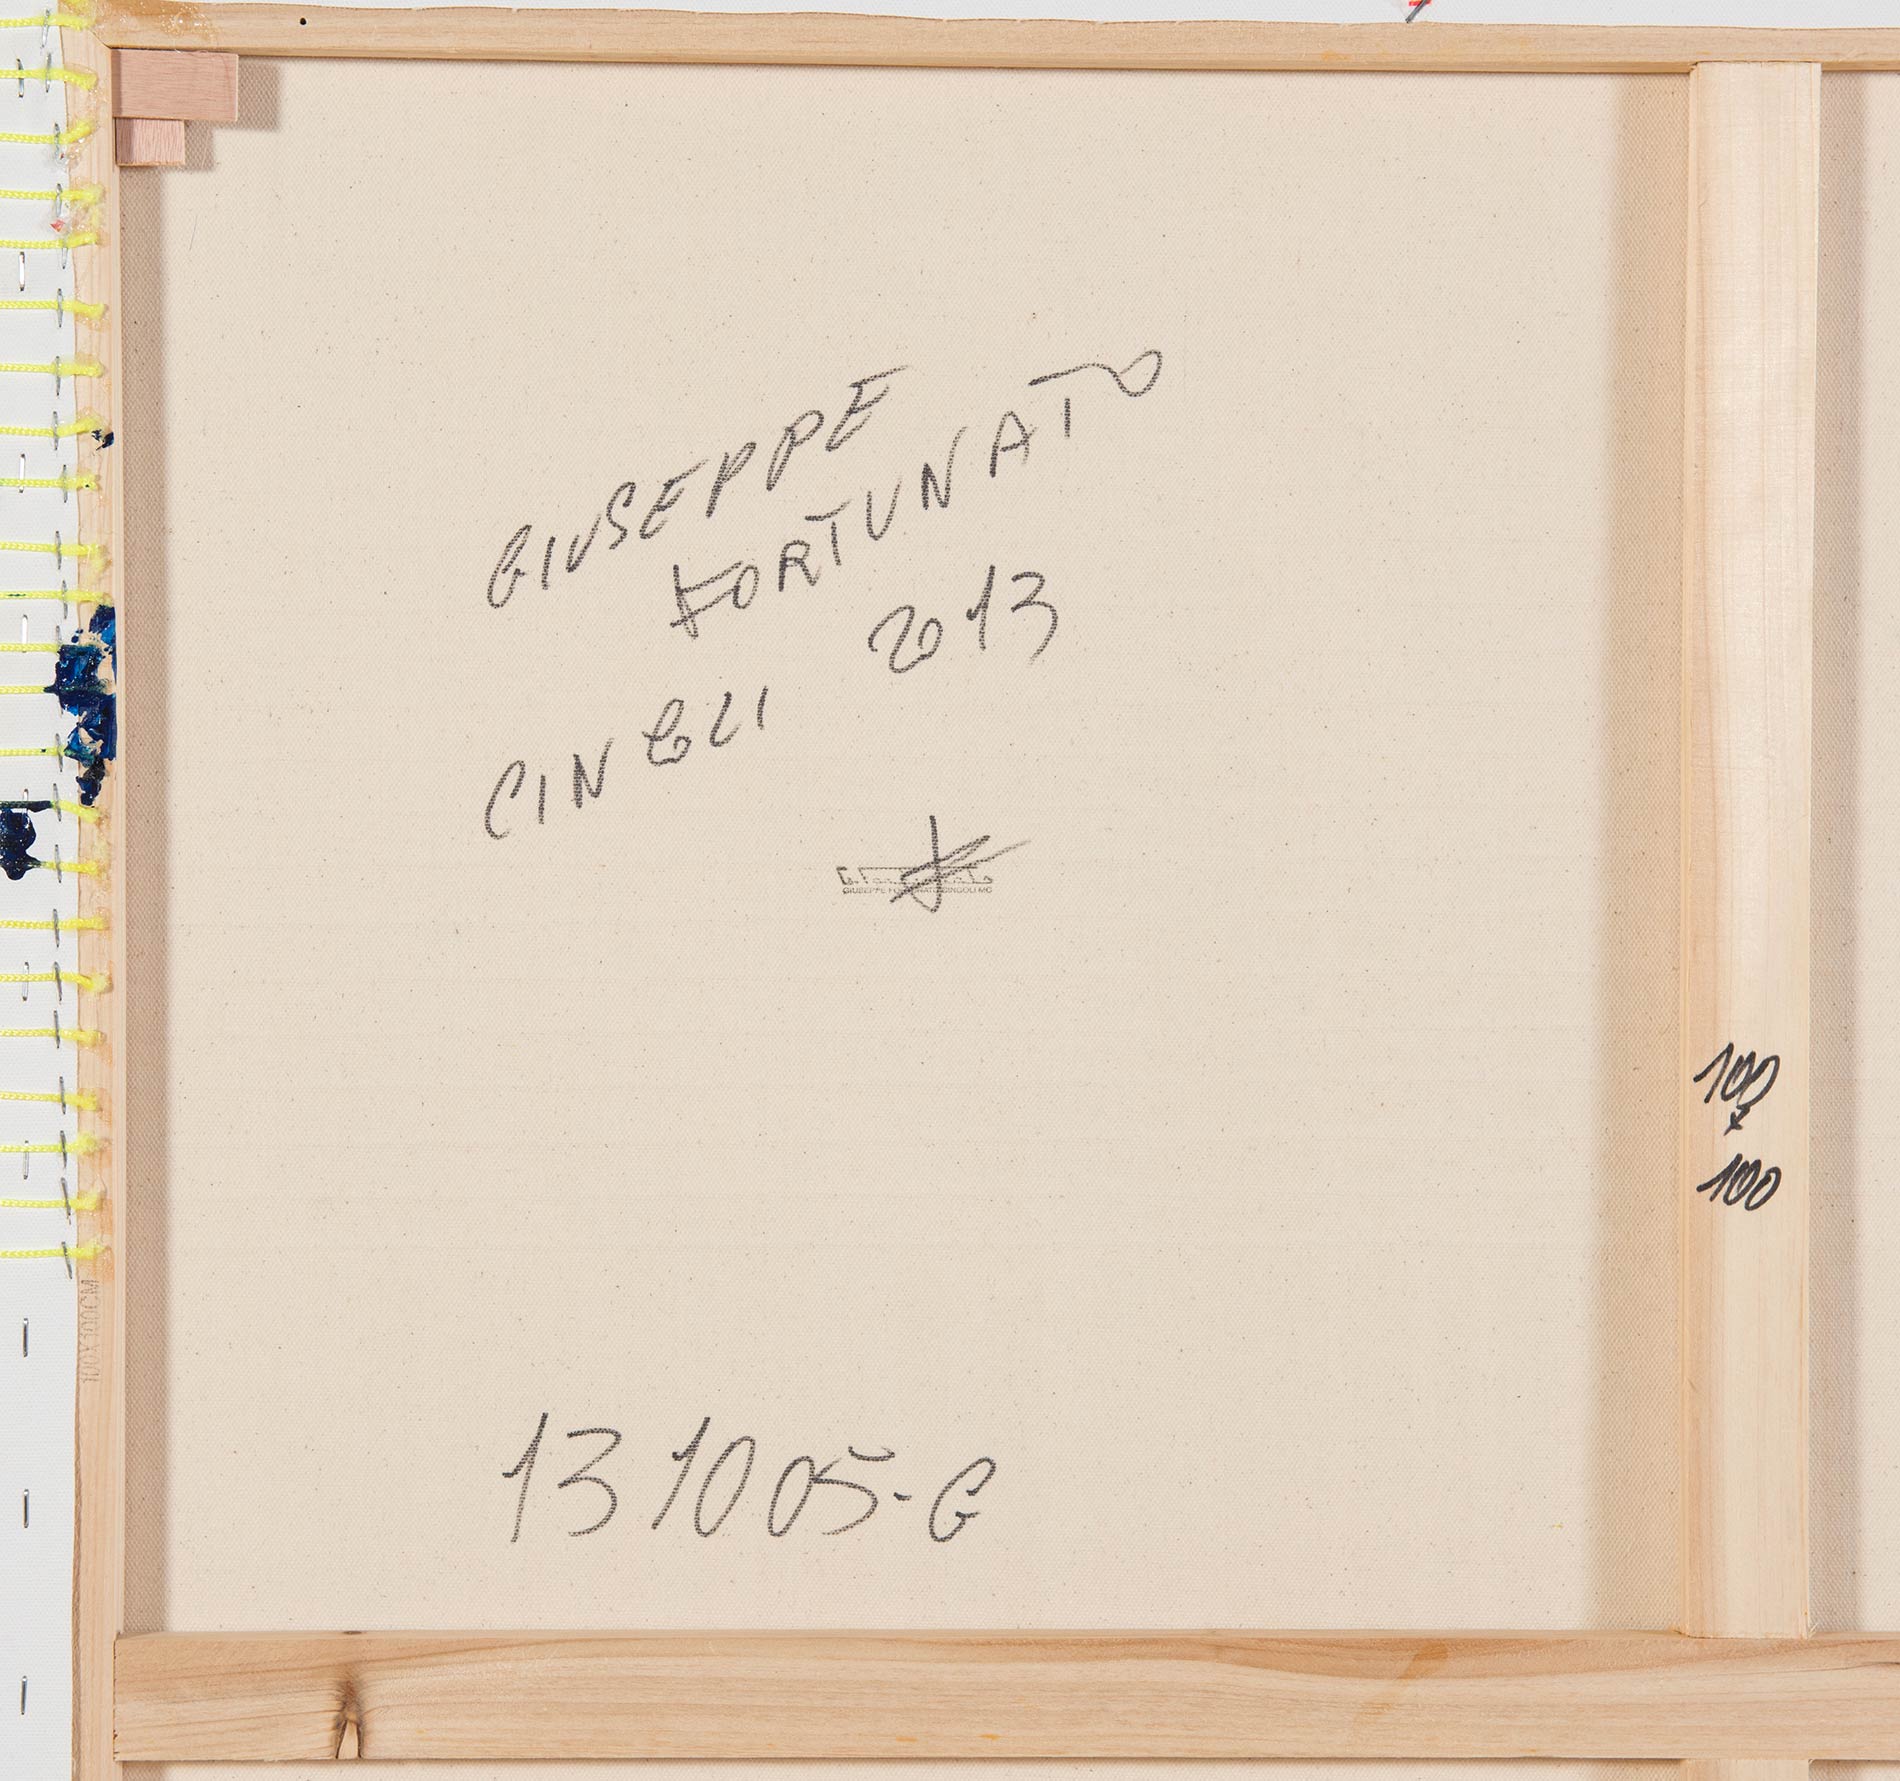 GIUSEPPE
FORTUNATO
2013
CINGLI
GIUSEPPE FORTUNATO CINGOLI MC
100
x
100
100X100CM
131005-G